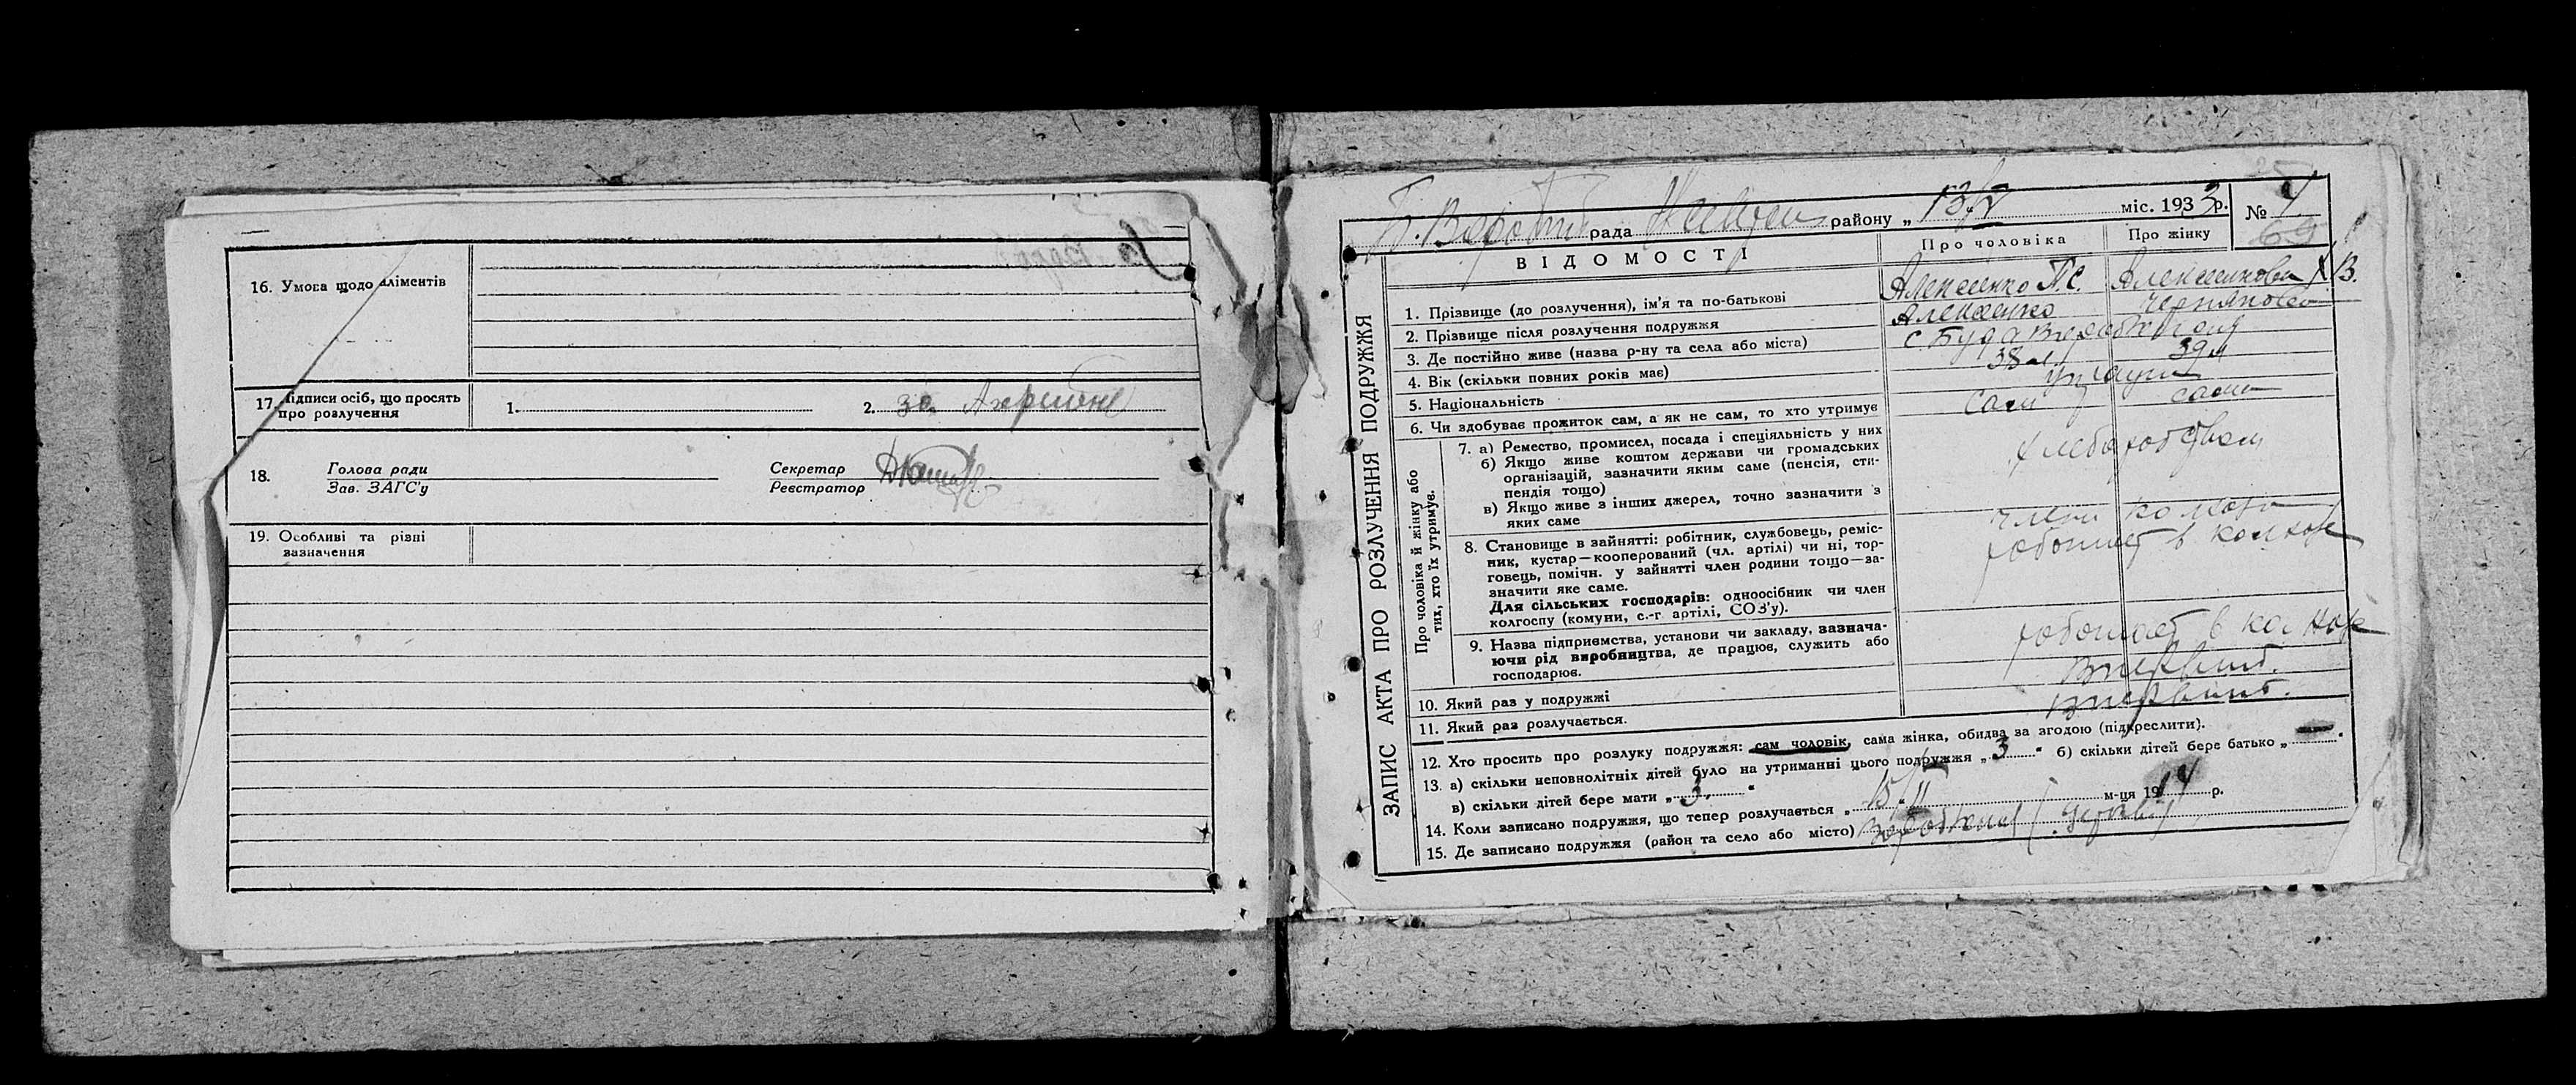 16. Умова щодо аліментів
17. Підписи осіб, що просять
про розлучення
1.
2. за
18.
Голова ради
Зав. ЗАГС'у
Секретар
Реєстратор
19. Особливі та різні
зазначення
рада району „ 13/V міс. 1933 р.
№ 4
69
ЗАПИС АКТА ПРО РОЗЛУЧЕННЯ ПОДРУЖЖЯ
ВІДОМОСТІ
Про чоловіка
Про жінку
1. Прізвище (до розлучення), ім'я та по-батькові
Алексеенко П.С.
Алексеенкова Х.В.
2. Прізвище після розлучення подружжя
Алексеенко
Чернякова
3. Де постійно живе (назва р-ну та села або міста)
с Буда
4. Вік (скільки повних років має)
38 л
39 л
5. Національність
6. Чи здобуває прожиток сам, а як не сам, то хто утримує
сам
сама
Про чоловіка й жінку або
тих, хто їх утримує.
7. а) Ремество, промисел, посада і спеціяльність у них
б) Якщо живе коштом держави чи громадських
організацій, зазначити яким саме (пенсія, сти-
пендія тощо)
в) Якщо живе з інших джерел, точно зазначити з
яких саме
хлеборобством
8. Становище в зайнятті: робітник, службовець, реміс-
ник, кустар—кооперований (чл. артілі) чи ні, тор-
говець, помічн. у зайнятті член родини тощо—за-
значити яке саме.
Для сільських господарів: одноосібник чи член
колгоспу (комуни, с.-г артілі, СОЗ'у).
члени колхоза
работает в колхозе
9. Назва підприємства, установи чи закладу, зазнача-
ючи рід виробництва, де працює, служить або
господарює.
работает в колхозе
10. Який раз у подружжі
11. Який раз розлучається.
12. Хто просить про розлуку подружжя: сам чоловік, сама жінка, обидва за згодою (підкреслити).
13. а) скільки неповнолітніх дітей було на утриманні цього подружжя „ 3 “ б) скільки дітей бере батько „ — “
в) скільки дітей бере мати „ 3. “
14. Коли записано подружжя, що тепер розлучається „ 15/II м-ця 1914 р.
15. Де записано подружжя (район та село або місто)